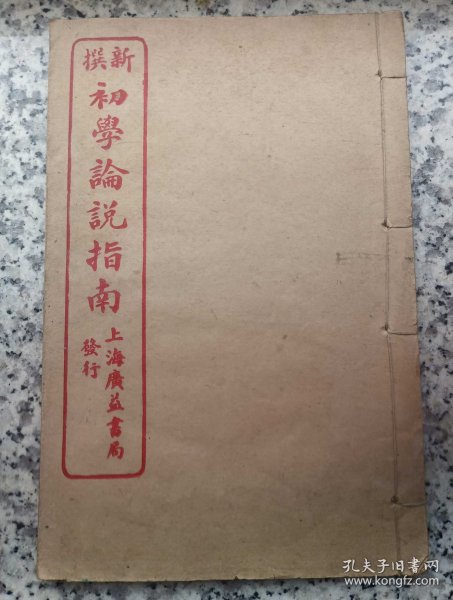 新撰
初學論說指南
上海廣益書局
發行
孔夫子旧书网
www.kongfz.com